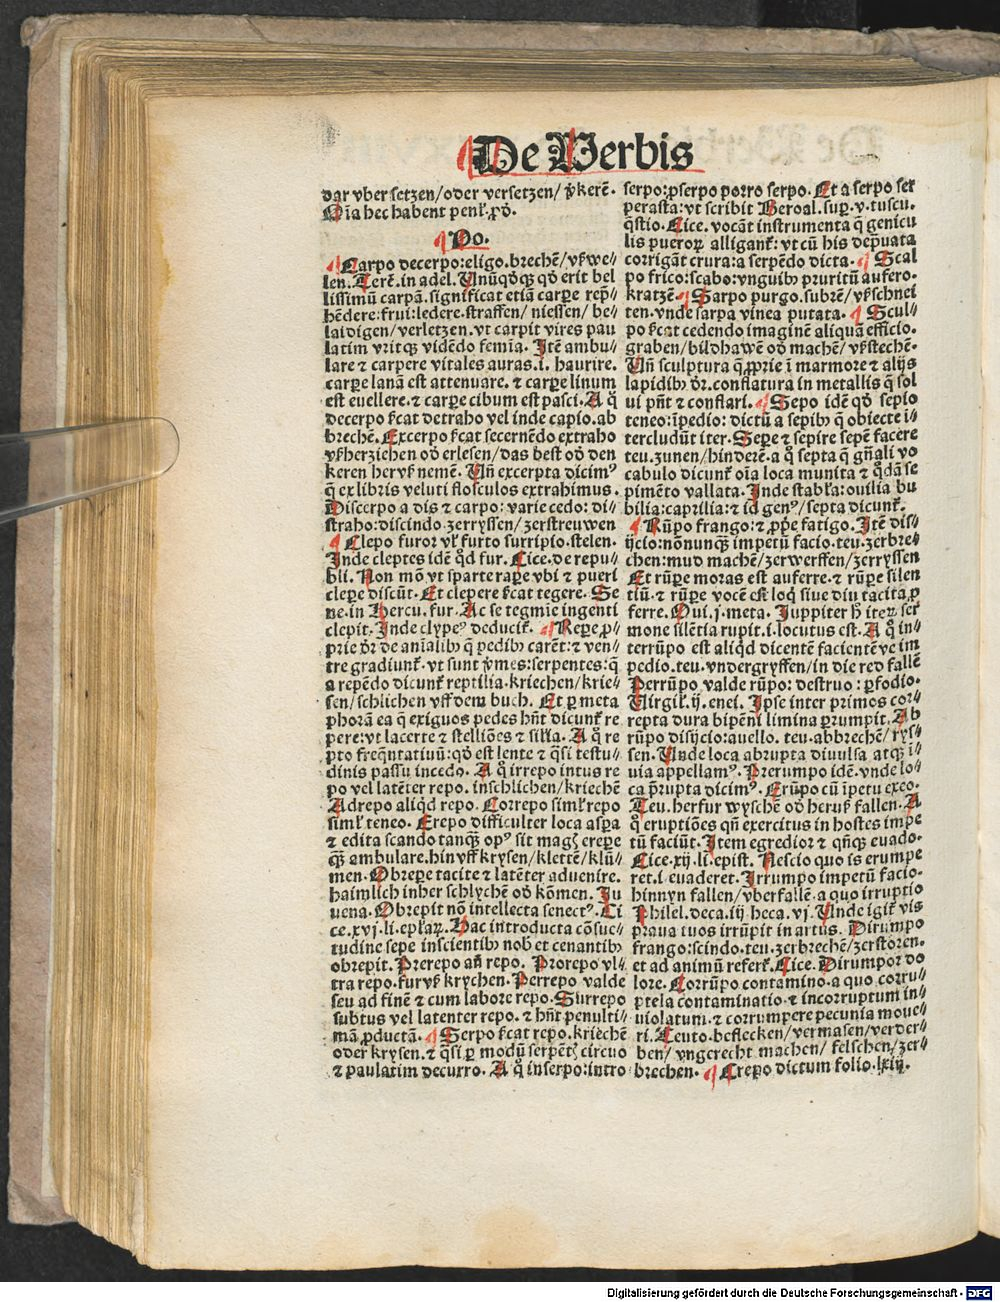 De Verbis
dar vber setzen/oder versetzen/ v̕kerē.
Oīa hec habent penl̕.ꝓd̕.
¶Do.
¶Carpo decerpo:eligo.brechē/vſwe⸗
len.Terē.in adel.Vnūqd̕qꝫ qd̕ erit bel
lissimū carpā.significat etiā carꝑe rep⸗
hēdere:frui:ledere.straffen/ niessen/ be⸗
laidigen/verletzen.vt carpit vires pau
latim vritqꝫ vidēdo femīa. Itē ambu⸗
lare ⁊ carpere vitales auras.i. haurire.
carꝑe lanā est attenuare. ⁊ carꝑe linum
est euellere.⁊ carꝑe cibum est pasci. A q̊
decerpo ſcat detraho vel inde capio.ab
brechē.Excerpo ſcat secernēdo extraho
vſherziehen od̕ erlesen/das best od̕ den
keren heruſ nemē. Vn̄ excerpta dicimꝰ
q̄ ex libris veluti flosculos extrahimus.
Discerpo a dis ⁊ carpo: varie cedo: di⸗
straho:discindo.zerryssen/zerstreuwen
¶Clepo furor vl̕ furto surripio.stelen.
Inde cleptes idē qd̕ fur. Cice.de repu⸗
bli. Non mō vt sparte raꝑe vbi ⁊ pueri
cleꝑe discūt. Et clepere ſcat tegere. Se
ne.in Hercu.fur. Ac se tegmīe ingenti
clepit. Inde clypeꝰ deducit̕. ¶Reꝑe ꝓ⸗
prie dr̕ de aīalibꝫ q̄ pedibꝫ carēt:⁊ ven⸗
tre gradiunt̕. vt sunt v̕mes:serpentes:q̄
a repēdo dicunt̕ reptilia.kriechen/krie⸗
sen/schlichen vff dem buch. Et ꝑ meta
phorā ea q̄ exiguos pedes hn̄t dicunt̕ re
pere:vt lacerte ⁊ stelliōes ⁊ sil̕ia. A q̊ re
pto freq̄ntatiuū:qd̕ est lente ⁊ q̄si testu⸗
dinis passu incedo. A q̊ irrepo intus re
po vel latēter repo. inschlichen/kriechē
Adrepo aliqd̕ repo. Correpo siml̕ repo
siml̕ teneo. Erepo difficulter loca asꝑa
⁊ edita scando tanqꝫ opꝰ sit magꝭ ereꝑe
qꝫ ambulare.hin vff krysen/klettē/klū⸗
men.Obreꝑe tacite ⁊ latēter aduenire.
haimlich inher schlychē od̕ kōmen. Iu
uena.Obrepit nō intellecta senectꝰ.Ci
ce.xvj.li.epl̕aꝝ. Hac introducta cōsuc⸗
tudine sepe inscientibꝫ nob̕ et cenantibꝫ
obrepit. Prerepo an̄ repo. Prorepo vl⸗
tra repo.furuſ krychen. Perrepo valde
seu ad finē ⁊ cum labore repo. Surrepo
subtus vel latenter repo. ⁊ hn̄t penulti⸗
mā ꝓductā. ¶Serpo ſcat repo.kriechē
oder krysen.⁊ q̄si ꝑ modū serpētꝭ circuo
⁊ paulatim decurro. A q̊ inserpo:intro
serpo:ꝓserpo porro serpo. Et a serpo ser
perasta:vt scribit Beroal.suꝑ.v.tuscu.
q̄stio.Cice. vocāt instrumenta q̄ genicu
lis pueroꝝ alligant̕: vt cū his deꝓuata
corrigāt crura:a serpēdo dicta. ¶Scal
po frico:scabo:vnguibꝫ pruritū aufero.
kratzē.¶Sarpo purgo.subrē/vſschnei
ten.vnde sarpa vinea putata. ¶Scul⸗
po ſcat cedendo imaginē aliquā efficio.
graben/bildhawē od̕ machē/vſstechē.
Vn̄ sculptura q̄ ꝓprie ī marmore ⁊ alijs
lapidibꝫ dr̕.conflatura in metallis q̄ sol
ui pn̄t ⁊ conflari. ¶Sepo idē qd̕ sepio
teneo:īpedio: dictū a sepibꝫ q̄ obiecte i⸗
tercludūt iter. Seꝑe ⁊ sepire sepē facere
teu.zunen/hinderē.a q̊ septa q̄ gn̄ali vo
cabulo dicunt̕ oīa loca munita ⁊ q̊dā se
pimēto vallata. Inde stabl̕a:ouilia bu
bilia:caprilia:⁊ id genꝰ/septa dicunt̕.
¶Rūpo frango:⁊ ꝓp̕e fatigo. Itē dis⸗
ijcio:nōnunqꝫ impetū facio.teu.zerbre⸗
chen:mud machē/zerwerffen/zerryssen
Et rūꝑe moras est auferre.⁊ rūꝑe silen
tiū.⁊ rūꝑe vocē est loq̕ siue diu tacita ꝓ
ferre. Oui.j.meta. Iuppiter h̕ iteꝝ ser
mone silētia rupit.i.locutus est. A q̊ in⸗
terrūpo est aliqd̕ dicentē facientēve im
pedio.teu.vndergryffen/in die red fallē
Perrūpo valde rūpo: destruo: ꝑfodio.
Virgil̕.ij.enei. Ipse inter primos cor⸗
repta dura bipēni limina ꝑrumpit.Ab
rūpo disijcio:auello. teu.abbrechē/rys⸗
sen. Vnde loca abrupta diuulsa atqꝫ ī⸗
uia appellamꝰ. Prerumpo idē.vnde lo⸗
ca p̄rupta dicimꝰ. Erūpo cū īpetu exeo.
Teu.herfur wyschē od̕ heruſ fallen. A
q̊ eruptiōes qn̄ exercitus in hostes impe
tū faciūt. Item egredior ⁊ qn̄qꝫ euado.
Cice.xij.li.epist. Nescio quo is erumpe
ret.i.euaderet. Irrumpo impetū facio.
hinnyn fallen/vberfallē.a quo irruptio
Philel.deca.iij.heca.vj. Vnde igit̕ vis
praua tuos irrūpit in artus. Dirumpo
frango:scindo.teu.zerbrechē/zerstoren.
et ad animū refert̕.Cice. Dirumpor do
lore. Corrūpo contamino.a quo corru⸗
ptela contaminatio.⁊ incorruptum in⸗
uiolatum.⁊ corrumpere pecunia moue⸗
ri. Teuto.beflecken/vermasen/verder⸗
ben/ vngerecht machen/ felschen/zer⸗
brechen. ¶Crepo dictum folio.lxiij.
Digitalisierung gefördert durch die Deutsche Forschungsgemeinschaft - DFG